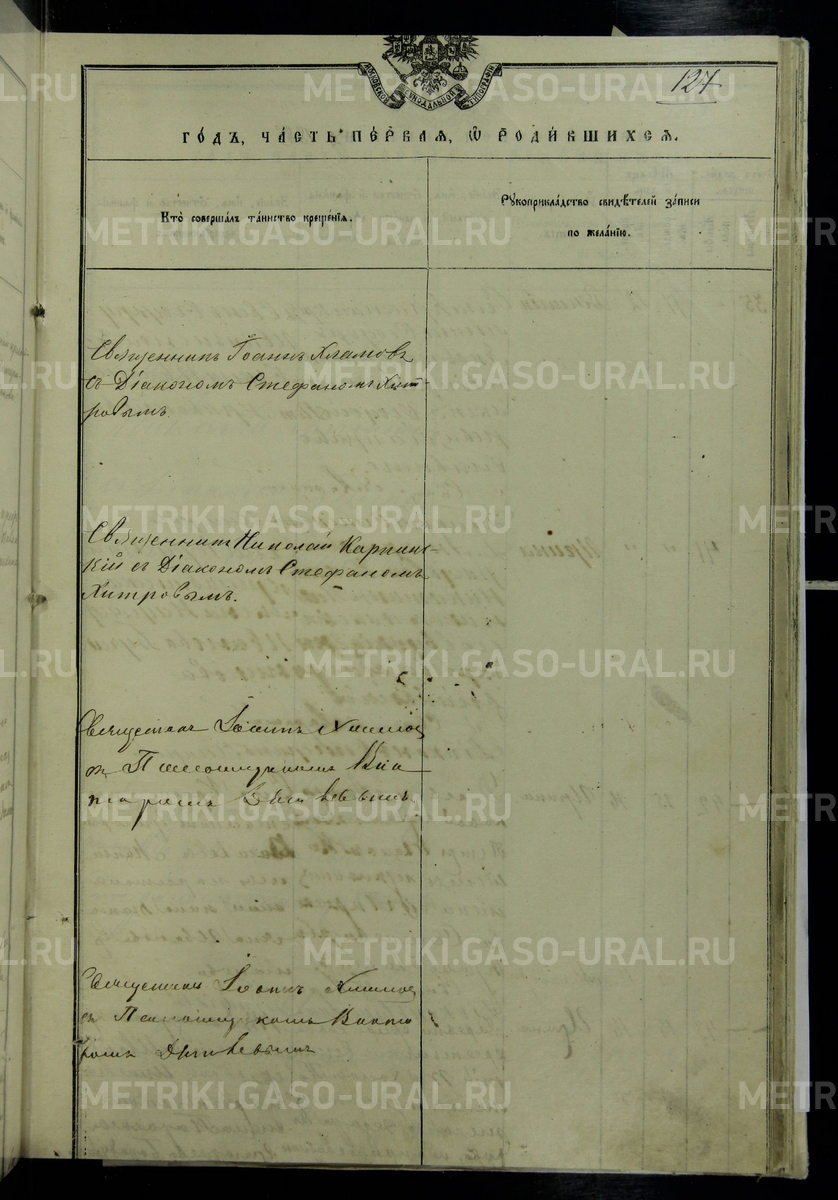 МОСКОВСКОЙ СѴНОДАЛЬНОЙ ТИПОГРАФІИ
127
ГО́ДЪ, ЧА́СТЬ ПЕ́РВАЯ, Ѡ҆ РОДИ́ВШИХСЯ.
Кто̀ соверша́лъ та́инство креще́нїя.
Рꙋкоприкла́дство свидѣ́телей за́писи
по жела́нїю.
Священникъ Іоаннъ Хламовъ
съ Діакономъ Стефаномъ Хит-
ровымъ.
Священникъ Николай Карпин-
скій съ Діакономъ Стефаномъ
Хитровымъ.
Священникъ Іоаннъ
съ Псаломщикомъ Вик
торомъ
Священникъ Іоаннъ
съ Псаломщикомъ Викто
ромъ
METRIKI.GASO-URAL.RU